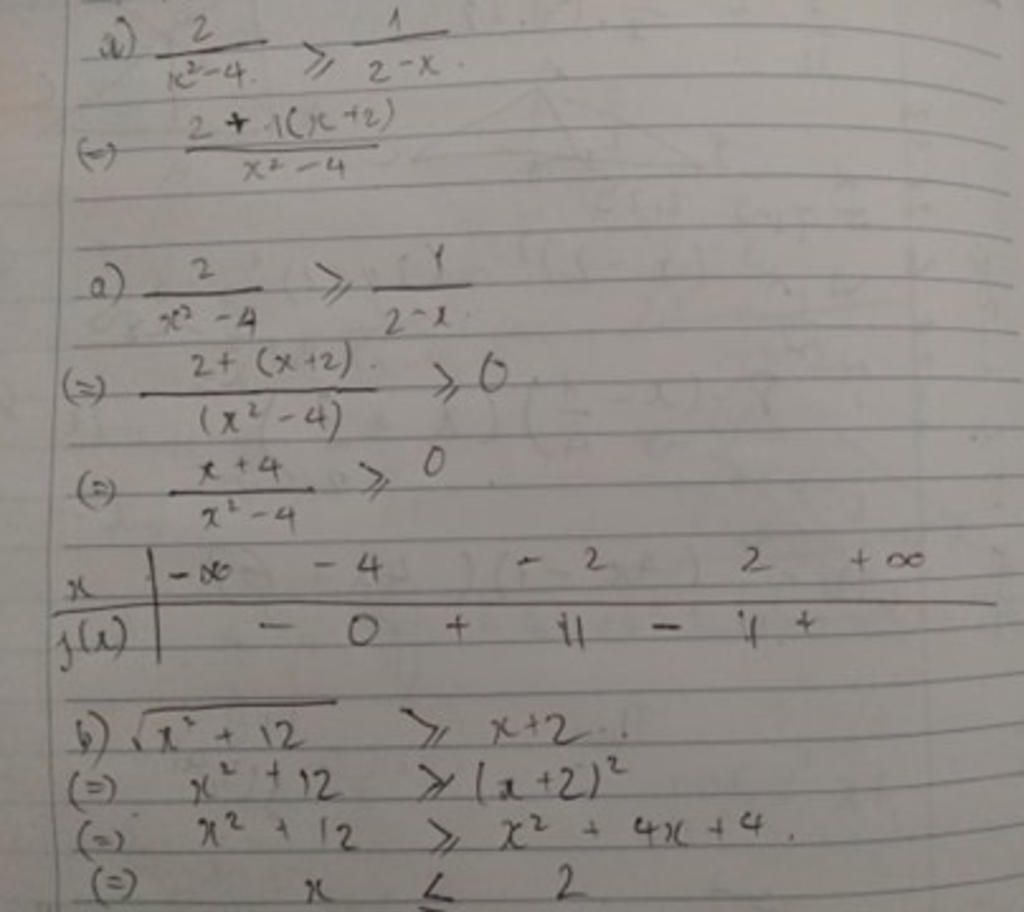 a) 2/(x²-4) ⩾ 1/(2-x)
(=) (2 + 1(x+2))/(x²-4)
a) 2/(x²-4) ⩾ 1/(2-x)
(=) (2+(x+2))/((x²-4)) ⩾ 0
(=) (x+4)/(x²-4) ⩾ 0
x | -∞ -4 -2 2 +∞
f(x) | - 0 + || - || +
b) √(x²+12) ⩾ x+2
(=) x²+12 ⩾ (x+2)²
(=) x²+12 ⩾ x²+4x+4.
(=) x ≤ 2